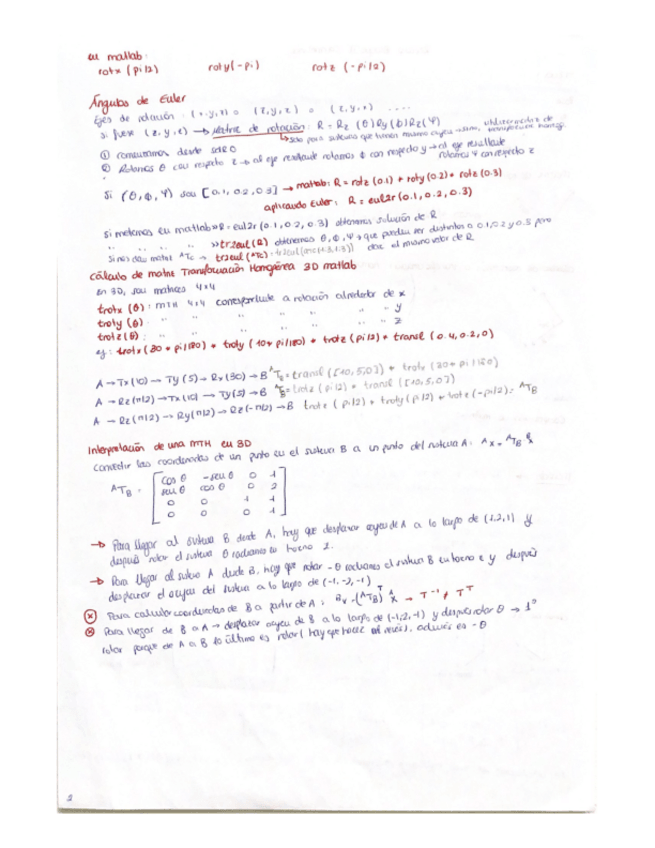 en matlab:
rotx (pi/2) roty(-pi) rotz (-pi/2)
Ángulos de Euler
Ejes de rotación: (x,y,z) o (z,y,z) o (z,y,x) ....
si fuese (z,y,z) → matriz de rotación: R = Rz (θ) Ry (ϕ) Rz (Ψ)
↳ solo para sistemas que tienen mismo origen
① comenzamos desde
② Rotamos θ con respecto z → al eje resultante rotamos ϕ con respecto y → al eje resultante
rotamos Ψ con respecto z
Si (θ, ϕ, Ψ) son [0.1, 0.2, 0.3] → matlab: R = rotz (0.1) * roty (0.2) * rotz (0.3)
aplicando Euler: R = eul2r (0.1, 0.2, 0.3)
si metemos en matlab >> R = eul2r (0.1, 0.2, 0.3) obtenemos solución de R
" " " >> tr2eul (R) obtenemos θ, ϕ, Ψ, que pueden ser distintos a 0.1, 0.2 y 0.3 pero
si nos dan matriz ᴬTc → tr2eul (ᴬTc) dan el mismo valor de R
Cálculo de matriz Transformación Homogénea 3D matlab
en 3D, son matrices 4x4
trotx (θ): MTH 4x4 correspondiente a rotación alrededor de x
troty (θ): " " " " " " y
trotz (θ): " " " " " " z
ej: trotx (30 * pi/180) * troty (10 * pi/180) * trotz (pi/2) * transl (0.4, 0.2, 0)
A → Tx (10) → Ty (5) → Rx (30) → B ᴬTB = transl ([10, 5, 0]) * trotx (30 * pi/180)
A → Rz (π/2) → Tx (10) → Ty (5) → B ᴬTB = trotz (pi/2) * transl ([10, 5, 0])
A → Rz (π/2) → Ry (π/2) → Rz (-π/2) → B trotz (pi/2) * troty (pi/2) * trotz (-pi/2) = ᴬTB
Interpretación de una MTH en 3D
Convertir las coordenadas de un punto en el sistema B a un punto del sistema A: ᴬx = ᴬTB ᴮx
ᴬTB = [cos θ -sen θ 0 1
sen θ cos θ 0 2
0 0 1 1
0 0 0 1]
→ Para llegar al sistema B desde A, hay que desplazar origen de A a lo largo de (1,2,1) y
después rotar el sistema θ radianes en torno z.
→ Para llegar al sistema A desde B, hay que rotar -θ radianes el sistema B en torno z y después
desplazar el origen del sistema a lo largo de (-1,-2,-1)
ⓧ Para calcular coordenadas de B a partir de A: → T⁻¹ ≠ Tᵀ
ⓧ Para llegar de B a A → desplazar origen de B a lo largo de (-1,-2,-1) y después rotar θ → 1º
rotar porque de A a B lo último es rotar (hay que hacer al revés), además es -θ
2